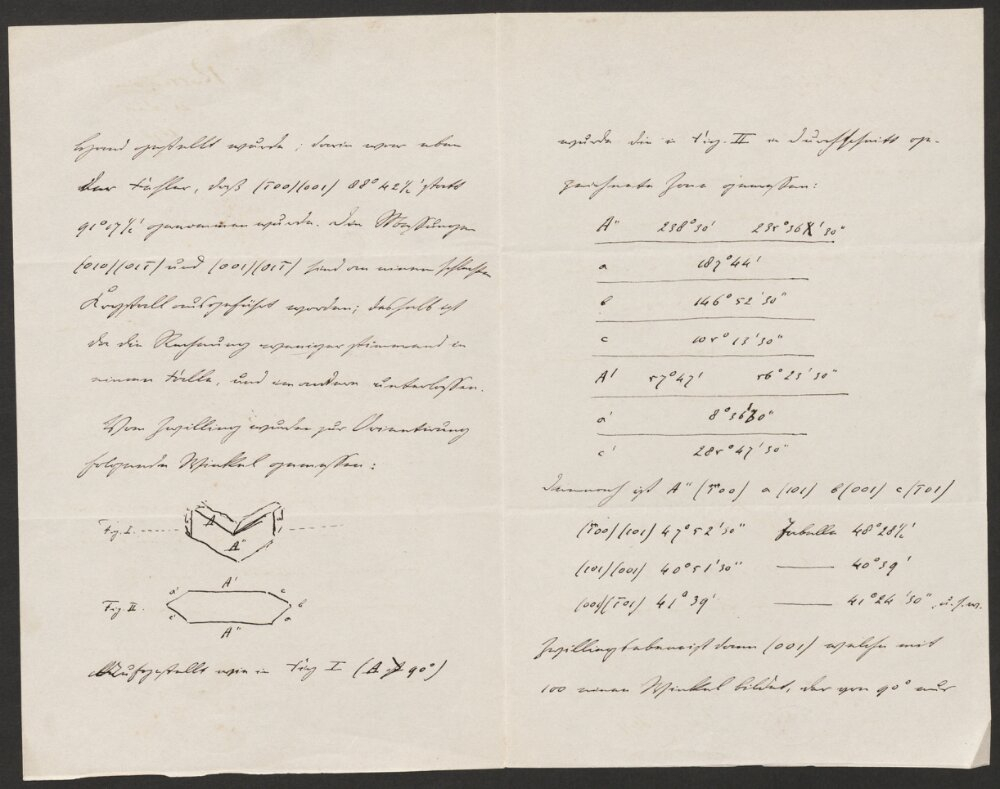 hand gestellt wurde; darin war eben
der Fehler, daß (1̅00)(001) 88° 42½' statt
91° 17½' genommen wurde. Die Messungen
(010)(011̅) und (001)(011̅) sind an einem schlechten
Krystall ausgeführt worden; deshalb ist
da die Rechnung weniger stimmend in
einem Falle, und im andern unterlassen.
Vom Zwilling wurden zur Orientirung
folgende Winkel gemessen:
Fig. I.
A
A''
Fig. II.
a' A' c
b
c' A'' a
Aufgestellt wie in Fig I (A 90°)
wurde die in Fig. II im Durchschnitt ge-
zeichnete Zone gemessen:
A'' 238° 30' 235° 36' 30''
a 187° 44'
b 146° 52' 30''
c 105° 13' 30''
A' 57° 47' 56° 23' 30''
a' 8° 36' 30''
c' 285° 47' 30''
Demnach ist A'' (1̅00) a (101) b (001) c (1̅01)
(1̅00)(101) 47° 52' 30'' Tabelle 48° 28½'
(101)(001) 40° 51' 30'' —— 40° 39'
(001)(1̅01) 41° 39' —— 41° 24' 30'', u.s.w.
Zwillingsebene ist dann (001) welche mit
100 einen Winkel bildet, der von 90° nur